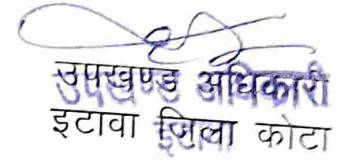 उपखण्ड अधिकारी
इटावा जिला कोटा